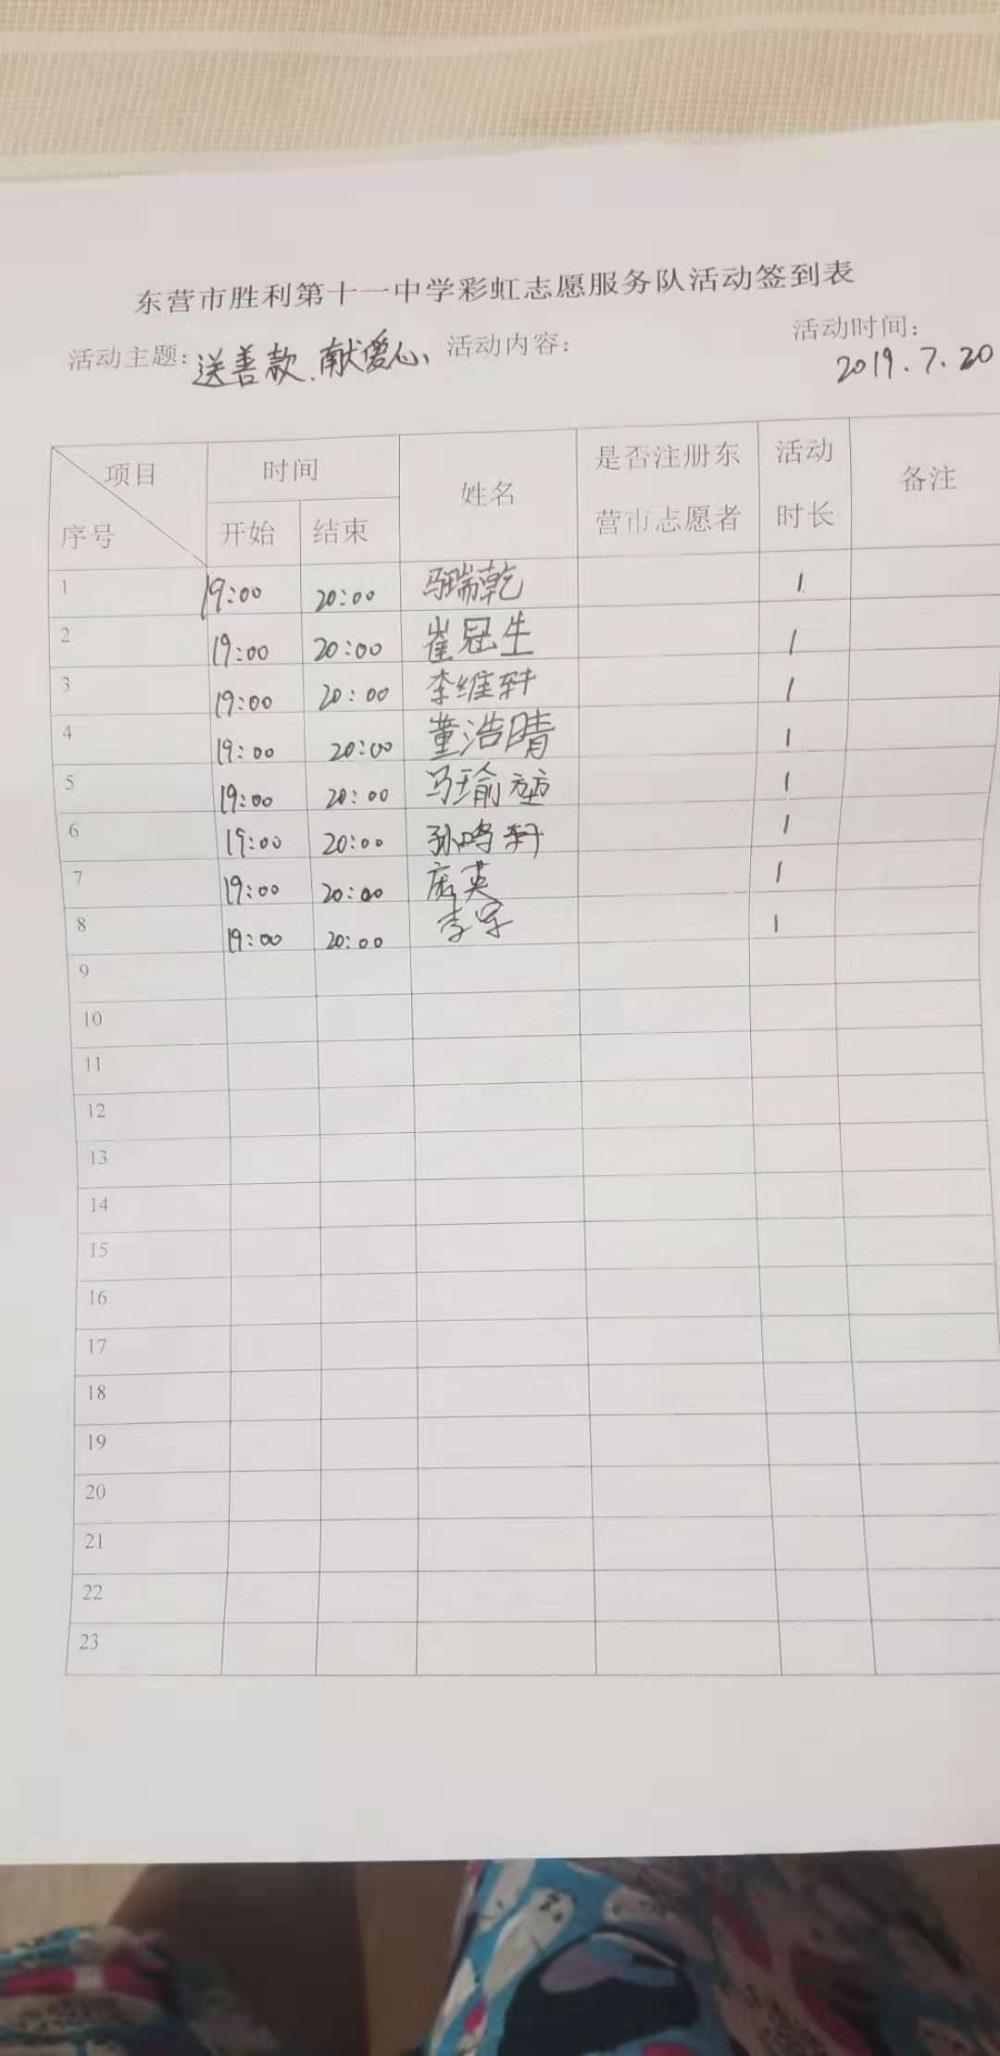 东营市胜利第十一中学彩虹志愿服务队活动签到表
活动主题：送善款、献爱心、 活动内容： 活动时间：
2019.7.20
项目 时间 姓名 是否注册东 活动 备注
序号 开始 结束 营市志愿者 时长
1 19:00 20:00 马瑞乾 1
2 19:00 20:00 崔冠生 1
3 19:00 20:00 李维轩 1
4 19:00 20:00 董浩晴 1
5 19:00 20:00 马瑜 1
6 19:00 20:00 孙鸣轩 1
7 19:00 20:00 英 1
8 19:00 20:00 李 1
9
10
11
12
13
14
15
16
17
18
19
20
21
22
23